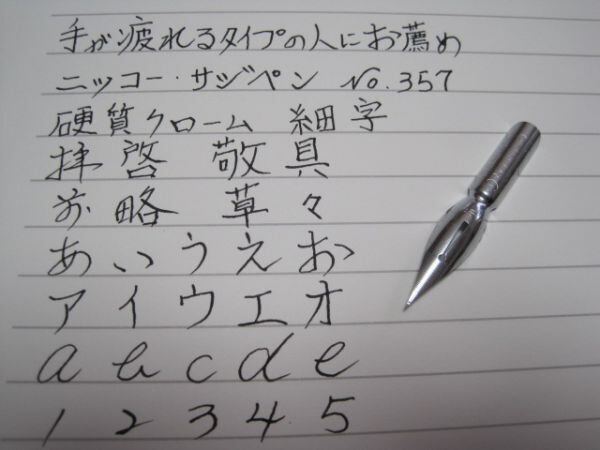 手が疲れるタイプの人にお薦め
ニッコー・サジペン No.357
硬質クローム 細字
拝啓 敬具
前略 草々
あいうえお
アイウエオ
a b c d e
1 2 3 4 5